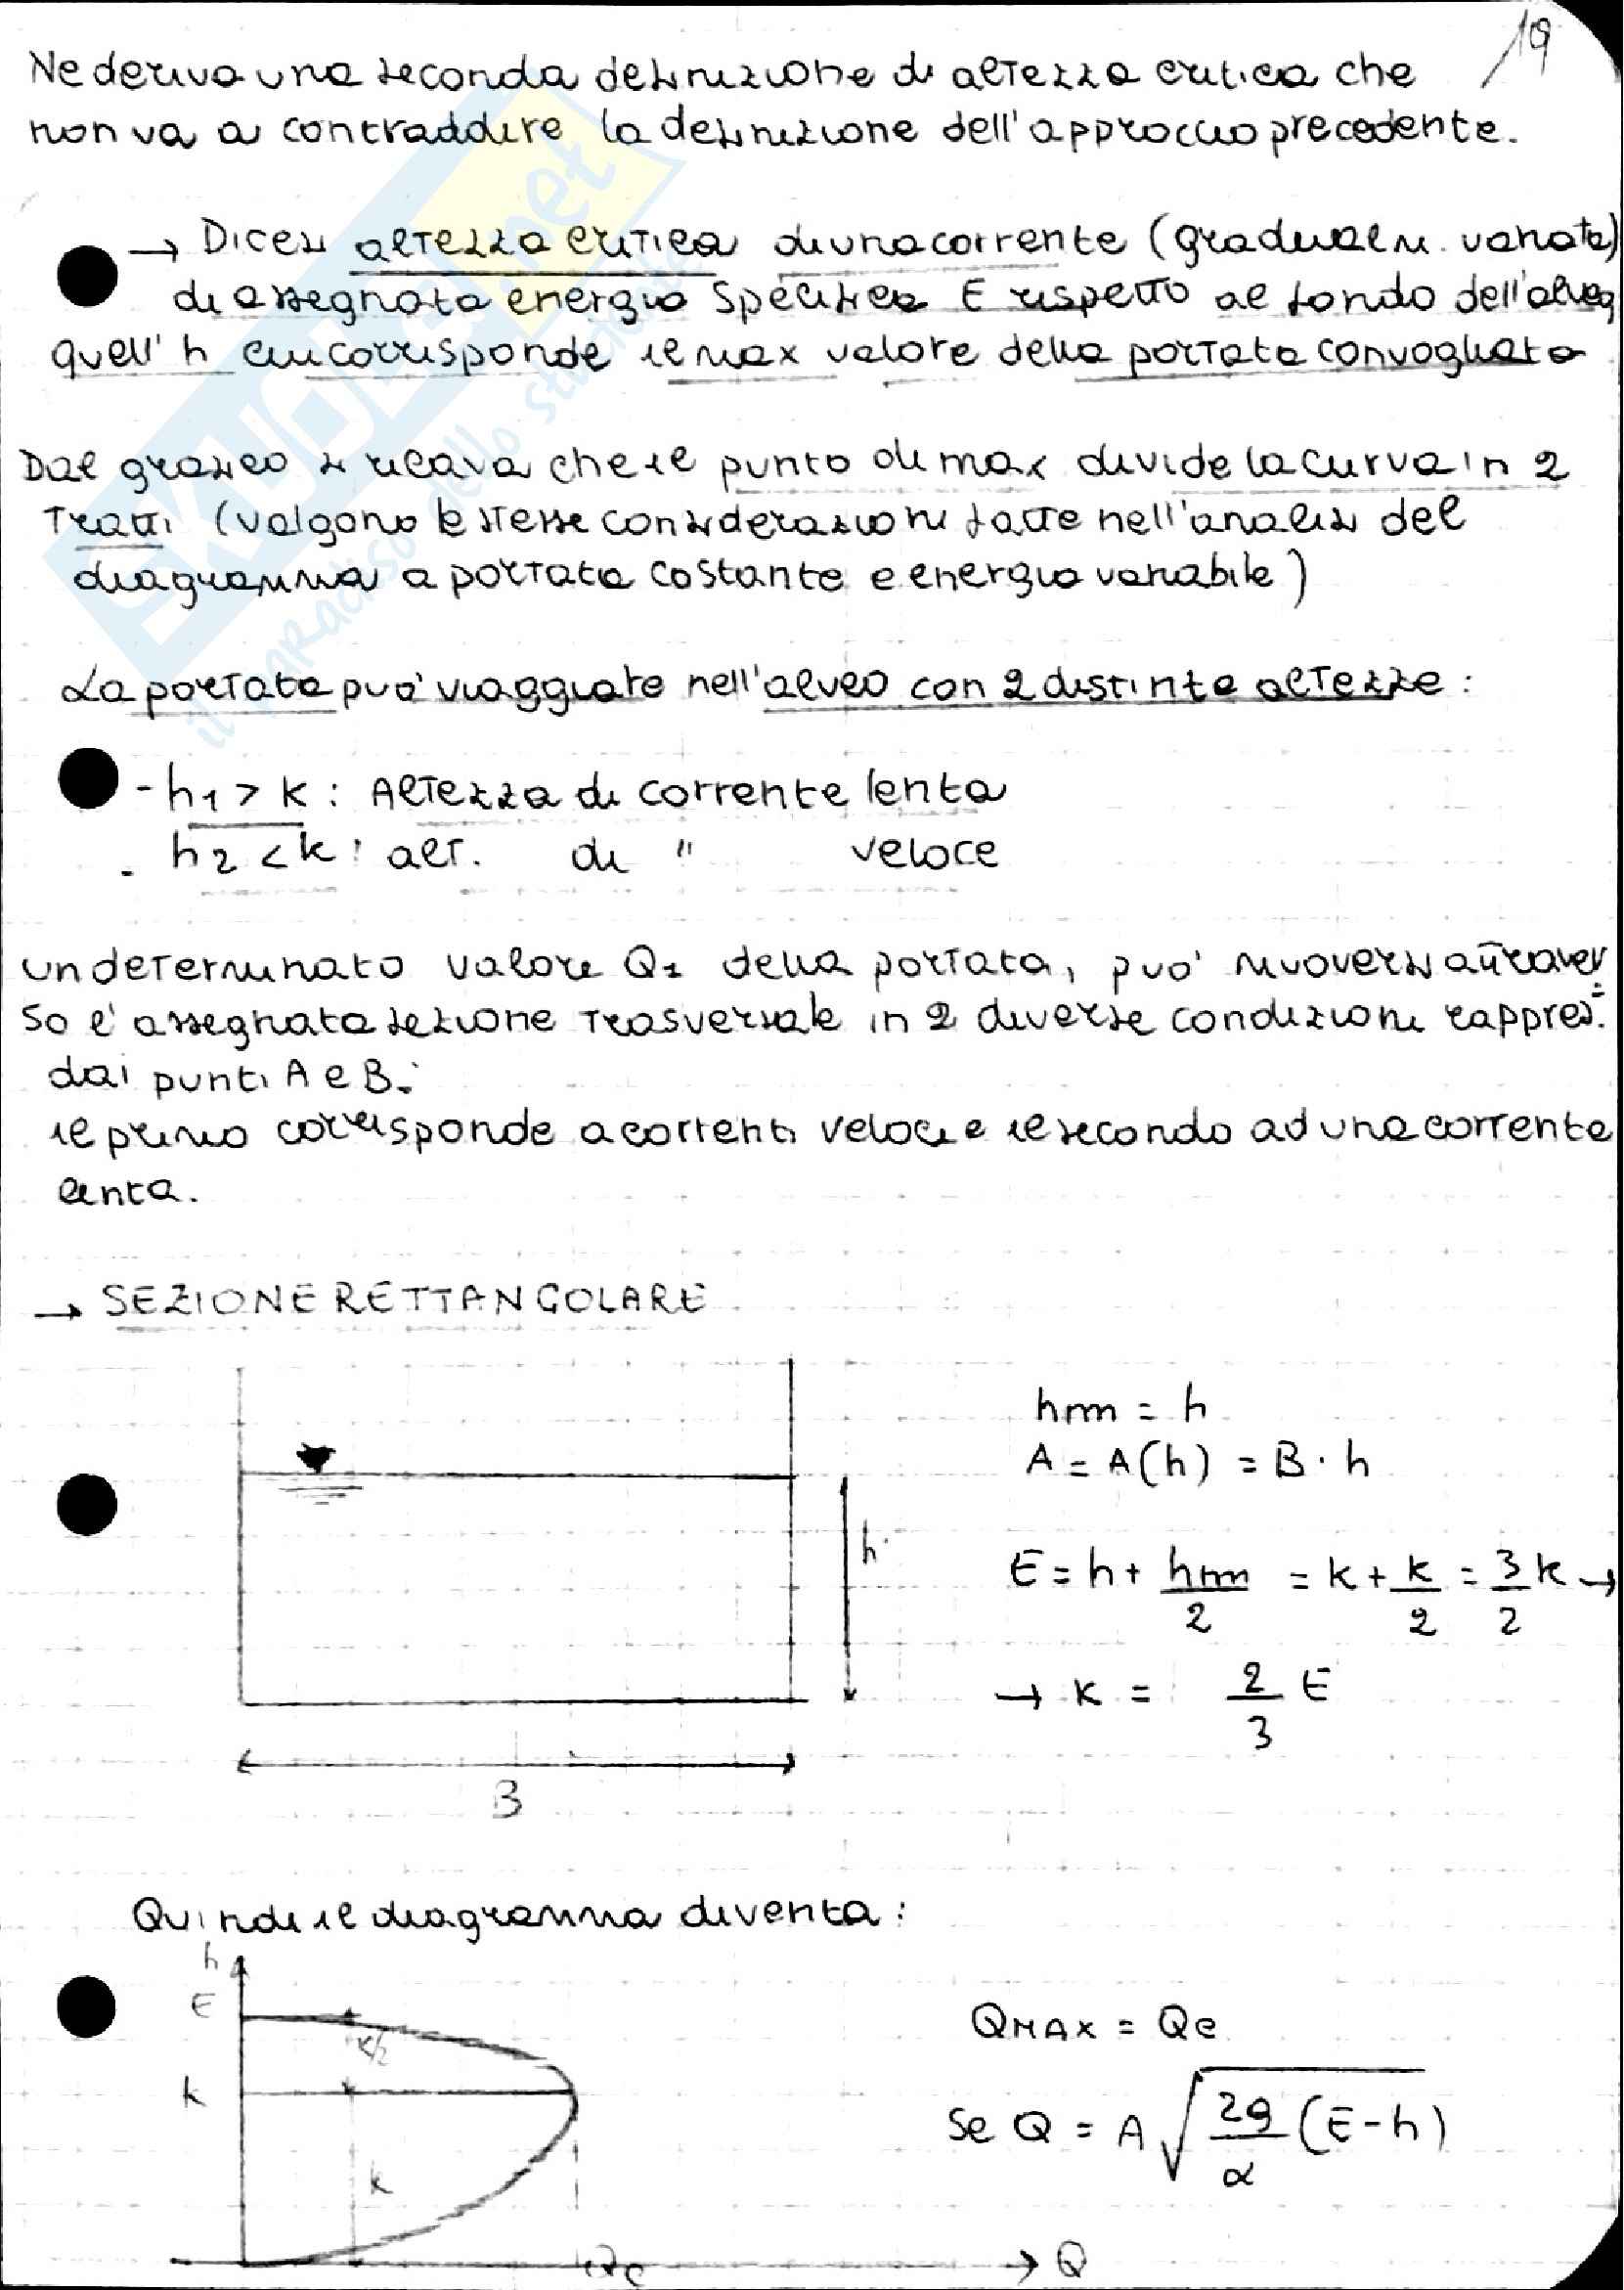 19
Ne deriva una seconda definizione di altezza critica che
non va a contraddire la definizione dell'approccio precedente.
→ Dicesi altezza critica di una corrente (gradualm. variata)
di assegnata energia specifica E rispetto al fondo dell'alveo
quell'h cui corrisponde il max valore della portata convogliata
Dal grafico si ricava che il punto di max divide la curva in 2
tratti (valgono le stesse considerazioni fatte nell'analisi del
diagramma a portata costante e energia variabile)
La portata può viaggiare nell'alveo con 2 distinte altezze:
- h1 > k : Altezza di corrente lenta
- h2 < k : alt. di " veloce
un determinato valore Q1 della portata, può muoversi attraver
so l'assegnata sezione trasversale in 2 diverse condizioni rappres.
dai punti A e B.
il primo corrisponde a correnti veloci e il secondo ad una corrente
lenta.
→ SEZIONE RETTANGOLARE
hm = h
A = A(h) = B · h
h
E = h + hm/2 = k + k/2 = 3/2 k →
→ k = 2/3 E
B
Quindi il diagramma diventa:
h
E
k/2
k
k
QMAX = Qc
Se Q = A √(2g/α (E-h))
Qc
Q
SKUOLA.net
il paradiso dello studente